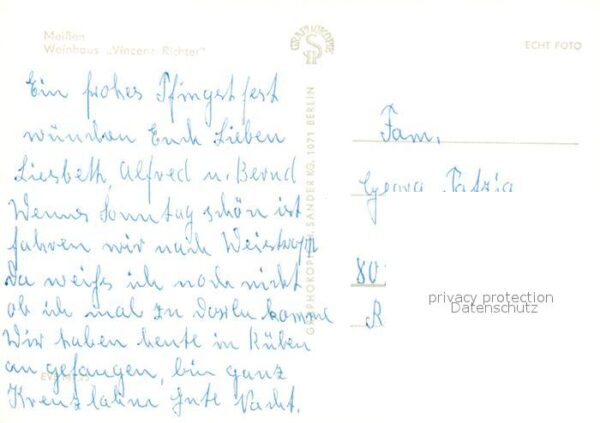 Meißen
Weinhaus „Vincenz Richter"
GRAPHOKOPIE
ECHT FOTO
Ein frohes Pfingstfest
wünschen Euch Lieben
Liesbeth, Alfred u. Bernd
Wenns Sonntag schön ist
fahren wir nach Weistropp
da weiß ich noch nicht
ob ich mal zu komme
Wir haben heute in Rüben
an gefangen, bin ganz
Kreuzlahm Gute Nacht.
GRAPHOKOPIE H. SANDER KG, 1071 BERLIN
Fam.
Georg
80
R
privacy protection
Datenschutz